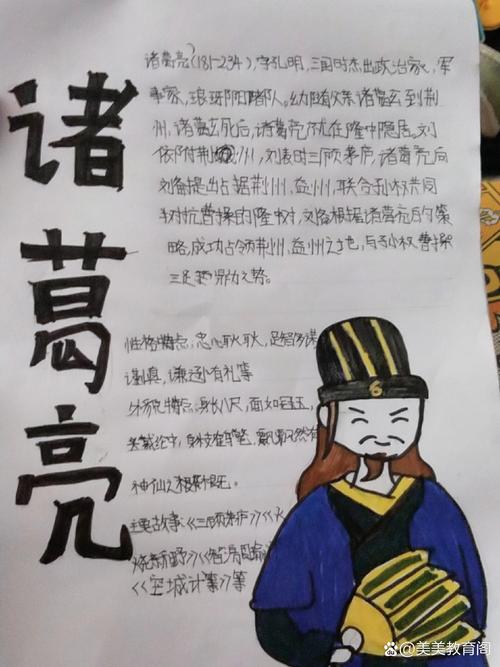 诸葛亮
诸葛亮(181-234),字孔明,三国时杰出政治家,军
事家,琅琊阳都人。幼随父亲诸葛玄到荆
州,诸葛玄死后,诸葛亮就在隆中隐居。刘
依附荆州,刘表时三顾茅庐,诸葛亮向
刘备提出占据荆州、益州,联合孙权共同
对抗曹操的隆中对,刘备根据诸葛亮的策
略,成功占领荆州、益州之地,与孙权曹操
三足鼎力之势。
性格特点:忠心耿耿,足智多谋
谨真,谦逊有礼等
外貌特点:身长八尺,面如冠玉,
头戴纶巾,身 飘飘然有
神仙之概
主要故事:《三顾茅庐》《火
烧新野》《智
《空城计》等
6
@美美教育阁